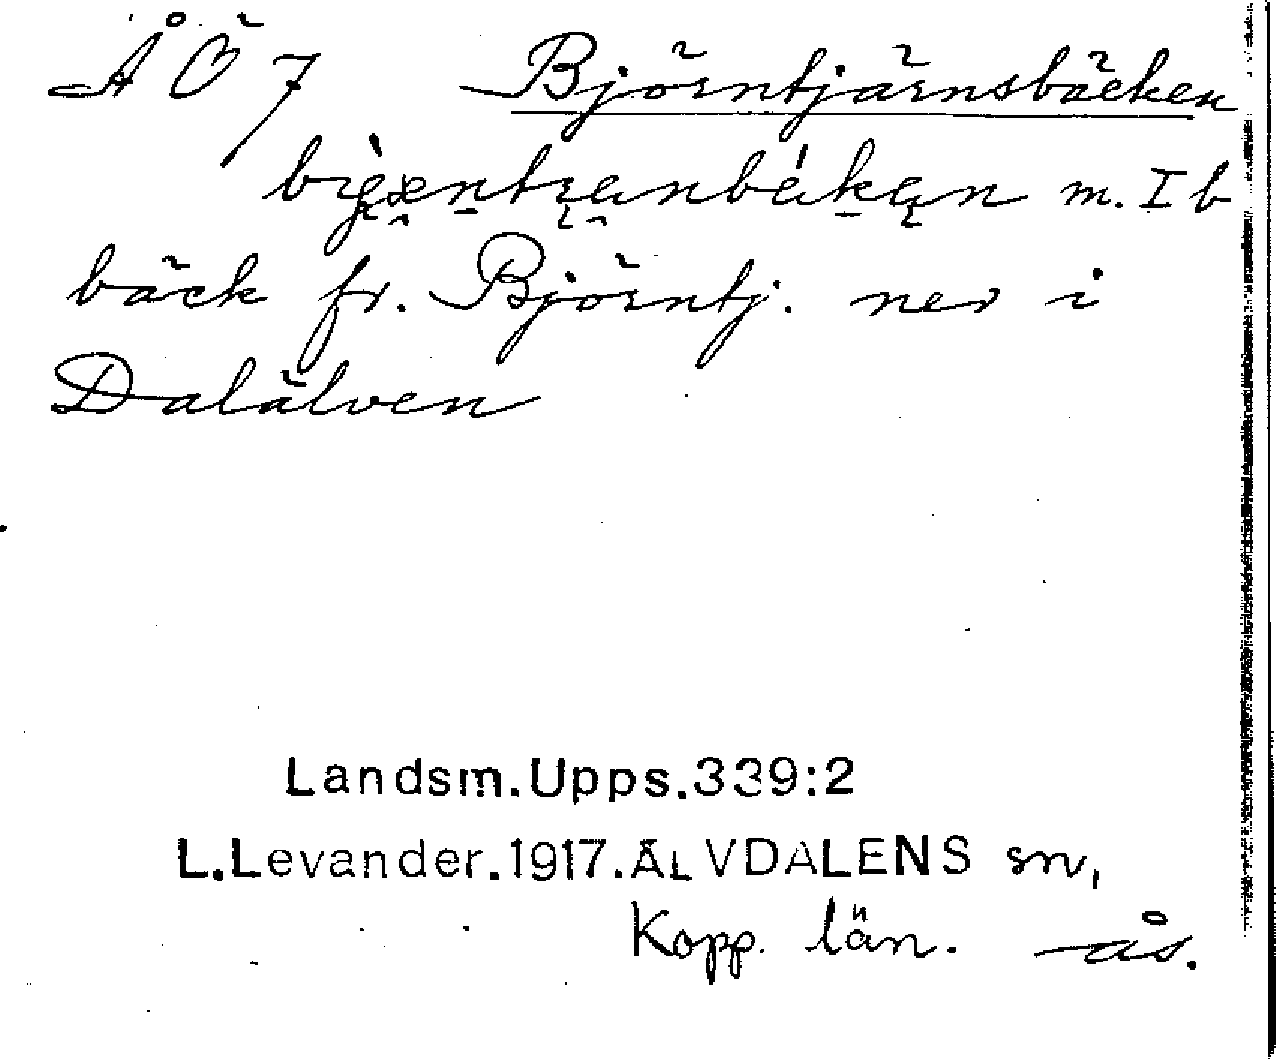 Å Ö 7 Björntjärnsbäcken
m. I b
bäck fr. Björntj. ner i
Dalälven
Landsm.Upps.339:2
L.Levander.1917.ÄLVDALENS sn,
Kopp. län. ås.